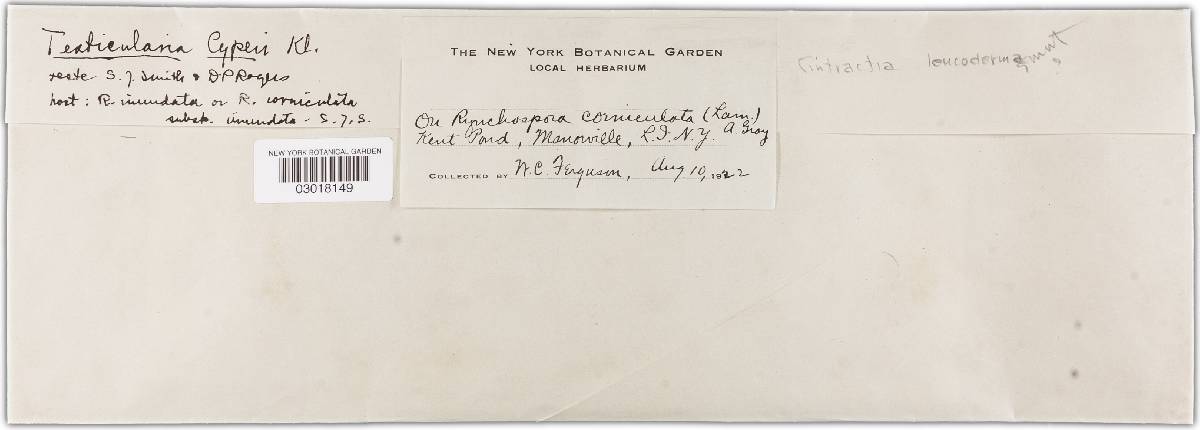 Testicularia Cyperi Kl.
teste S. J. Smith & D P Rogers
host: R. inundata or R. corniculata
subsp. inundata - S. J. S.
NEW YORK BOTANICAL GARDEN
03018149
THE NEW YORK BOTANICAL GARDEN
LOCAL HERBARIUM
On Rynchospora corniculata (Lam.)
A Gray
Kent Pond, Manorville, L.I. N.Y.
COLLECTED BY W. C. Ferguson, Aug 10, 1922
Cintractia leucoderma